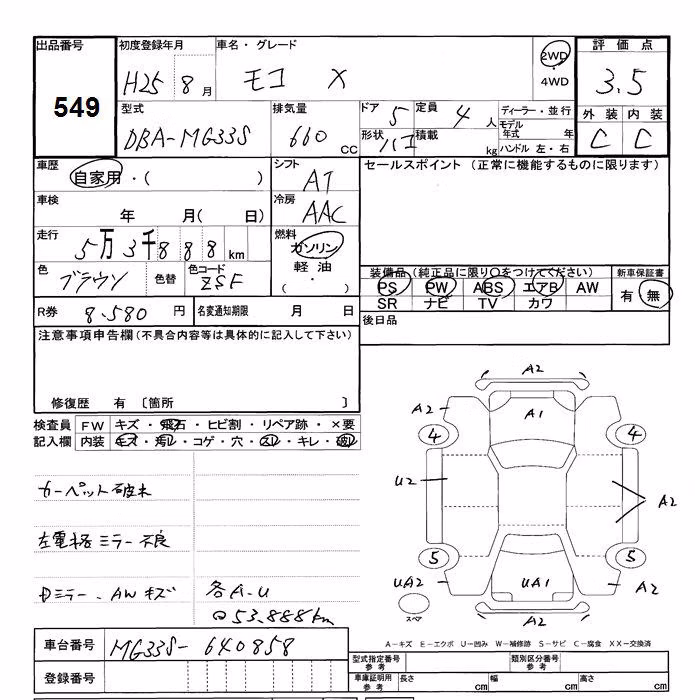 出品番号 初度登録年月 車名・グレード 2WD 評価点
549 H25 8月 モコ X 4WD 3.5
型式 排気量 ドア 5 定員 4人 ディーラー・並行 外装 内装
DBA-MG33S 660 CC 形状 ハコ 積載 kg モデル年式 年 C C
ハンドル 左・右
車歴 自家用・( ) シフト AT セールスポイント (正常に機能するものに限ります)
車検 年 月( 日) 冷房 AAC
走行 5万3千888km 燃料 ガソリン
軽油
( ・ )
色 ブラウン 色替 色コード ZSF
装備品(純正品に限り○をつけてください) 新車保証書
PS PW ABS エアB AW 有・無
SR ナビ TV カワ
R券 8.580円 名変通知期限 月 日 後日品
注意事項申告欄(不具合内容等は具体的に記入して下さい)
修復歴 有 〔箇所 〕
検査員 FW キズ・飛石・ヒビ割・リペア跡・×要
記入欄 内装 キズ・汚レ・コゲ・穴・スレ・キレ・破レ
カーペット破れ
左電格ミラー不良
ミラー、AWキズ 各A-U
53.888km
A2
A2 A1
4 4
U2 A2
5 5
UA2 UA1 A2
スペア A2
A-キズ E-エクボ U-凹み W-補修跡 S-サビ C-腐食 XX-交換済
車台番号 MG33S-640858
登録番号
型式指定番号 参考 類別区分番号 参考
車庫証明用 参考 長さ cm 幅 cm 高さ cm